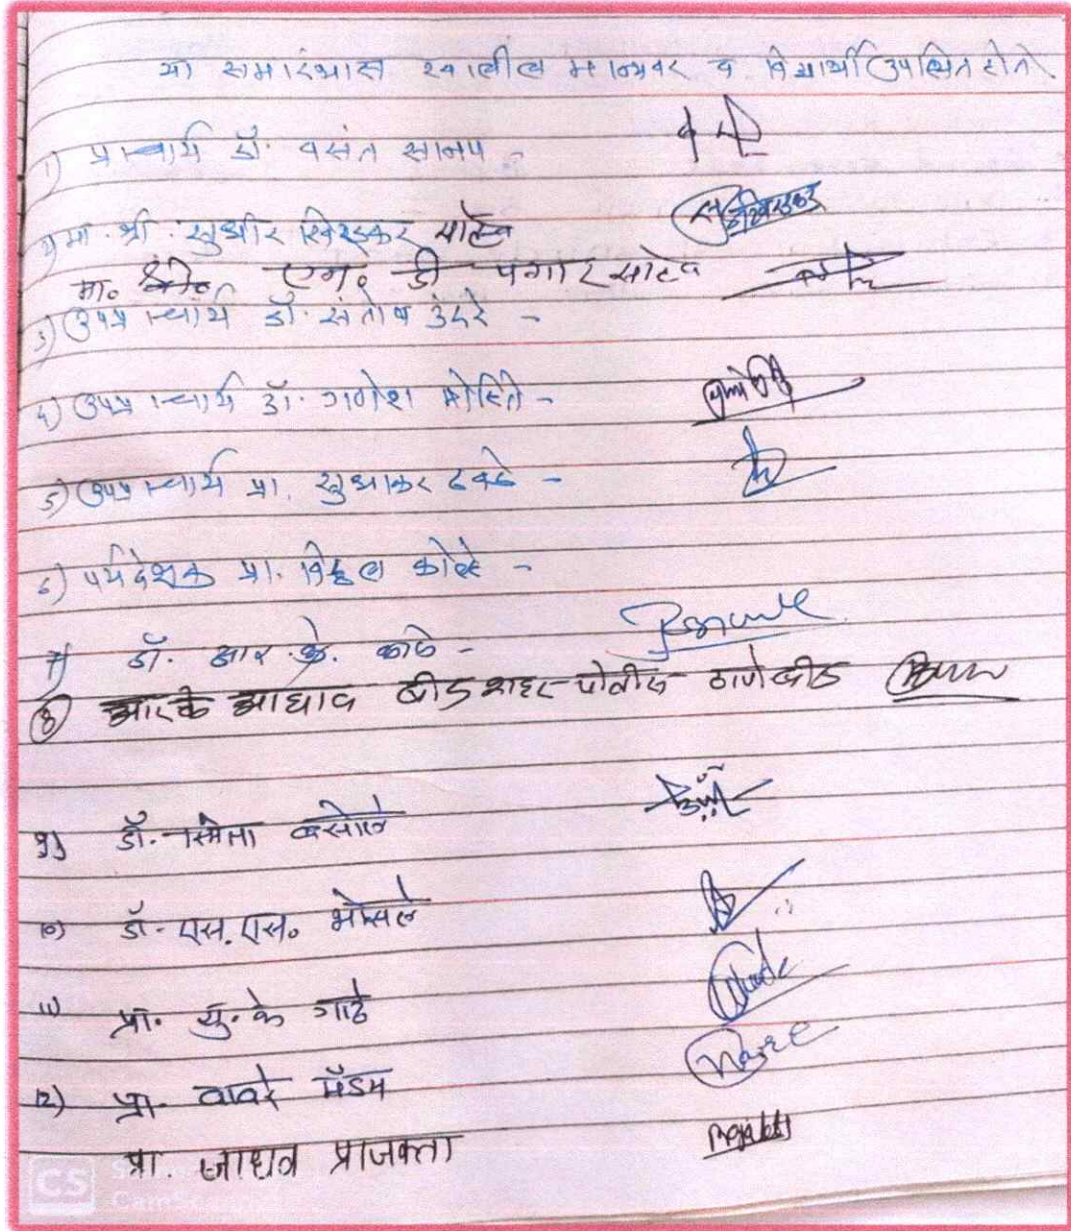 या समारंभास खालील मान्यवर व विद्यार्थी उपस्थित होते.
1) प्राचार्य डॉ. वसंत सानप -
2) मा. श्री. सुधीर खिरडकर साहेब
मा. एम. डी पगार साहेब
3) उपप्राचार्य डॉ. संतोष उंदरे -
4) उपप्राचार्य डॉ. गणेश मोहिते -
5) उपप्राचार्य प्रा. सुधाकर ढवळे -
6) पर्यवेक्षक प्रा. विठ्ठल कोल्हे -
7) डॉ. आर. के. काळे -
8 आर के आघाव बीड शहर पोलीस ठाणे बीड
9) डॉ. स्मिता
10) डॉ. एस. एस. भोसले
11) प्रा. यु. के गाडे
12) प्रा. वावरे मॅडम
प्रा. जाधव प्राजक्ता
CS
CamScanner